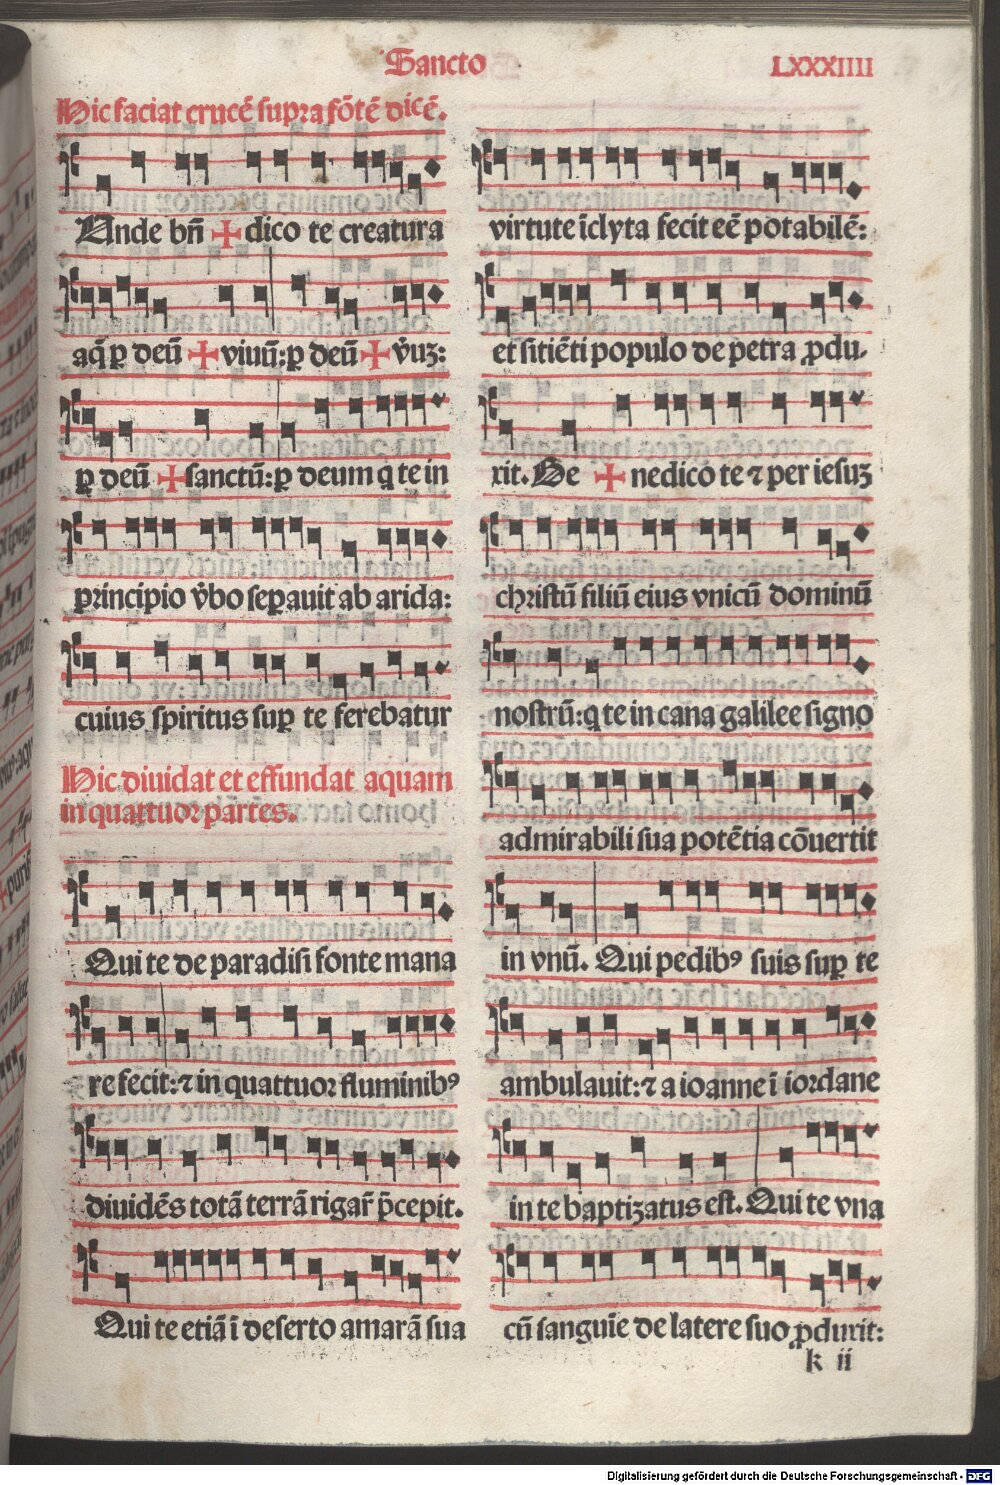 Sancto
LXXXIIII
Hic faciat crucē supra fōtē dicē.
Unde bn̄ ✠ dico te creatura
aq̄ ꝑ deū ✠ viuū: ꝑ deū ✠ v̄uʒ:
ꝑ deū ✠ sanctū: ꝑ deum q̄ te in
principio v̄bo seꝑauit ab arida:
cuius spiritus suꝑ te ferebatur
Hic diuidat et effundat aquam
in quattuor partes.
Qui te de paradisi fonte mana
re fecit: ⁊ in quattuor fluminibꝰ
diuidēs totā terrā rigar̄ p̄cepit.
Qui te etiā ī deserto amarā sua
virtute īclyta fecit eē potabilē:
et sitiēti populo de petra ꝓdu-
xit. Be ✠ nedico te ⁊ per iesuʒ
christū filiū eius vnicū dominū
nostrū: q̄ te in cana galilee signo
admirabili sua potētia cōuertit
in vnū. Qui pedibꝰ suis suꝑ te
ambulauit: ⁊ a ioanne ī iordane
in te baptiʒatus est. Qui te vna
cū sanguīe de latere suo ꝓduxit:
k ii
Digitalisierung gefördert durch die Deutsche Forschungsgemeinschaft - DFG